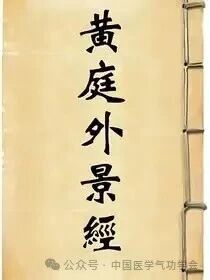 黄庭外景經
公众号·中国医学气功学会